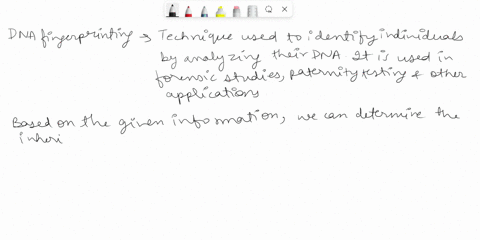 DNA fingerprinting → Technique used to identify individuals
by analyzing their DNA. It is used in
forensic studies, paternity testing & other
applications
Based on the given information, we can determine the
inheri